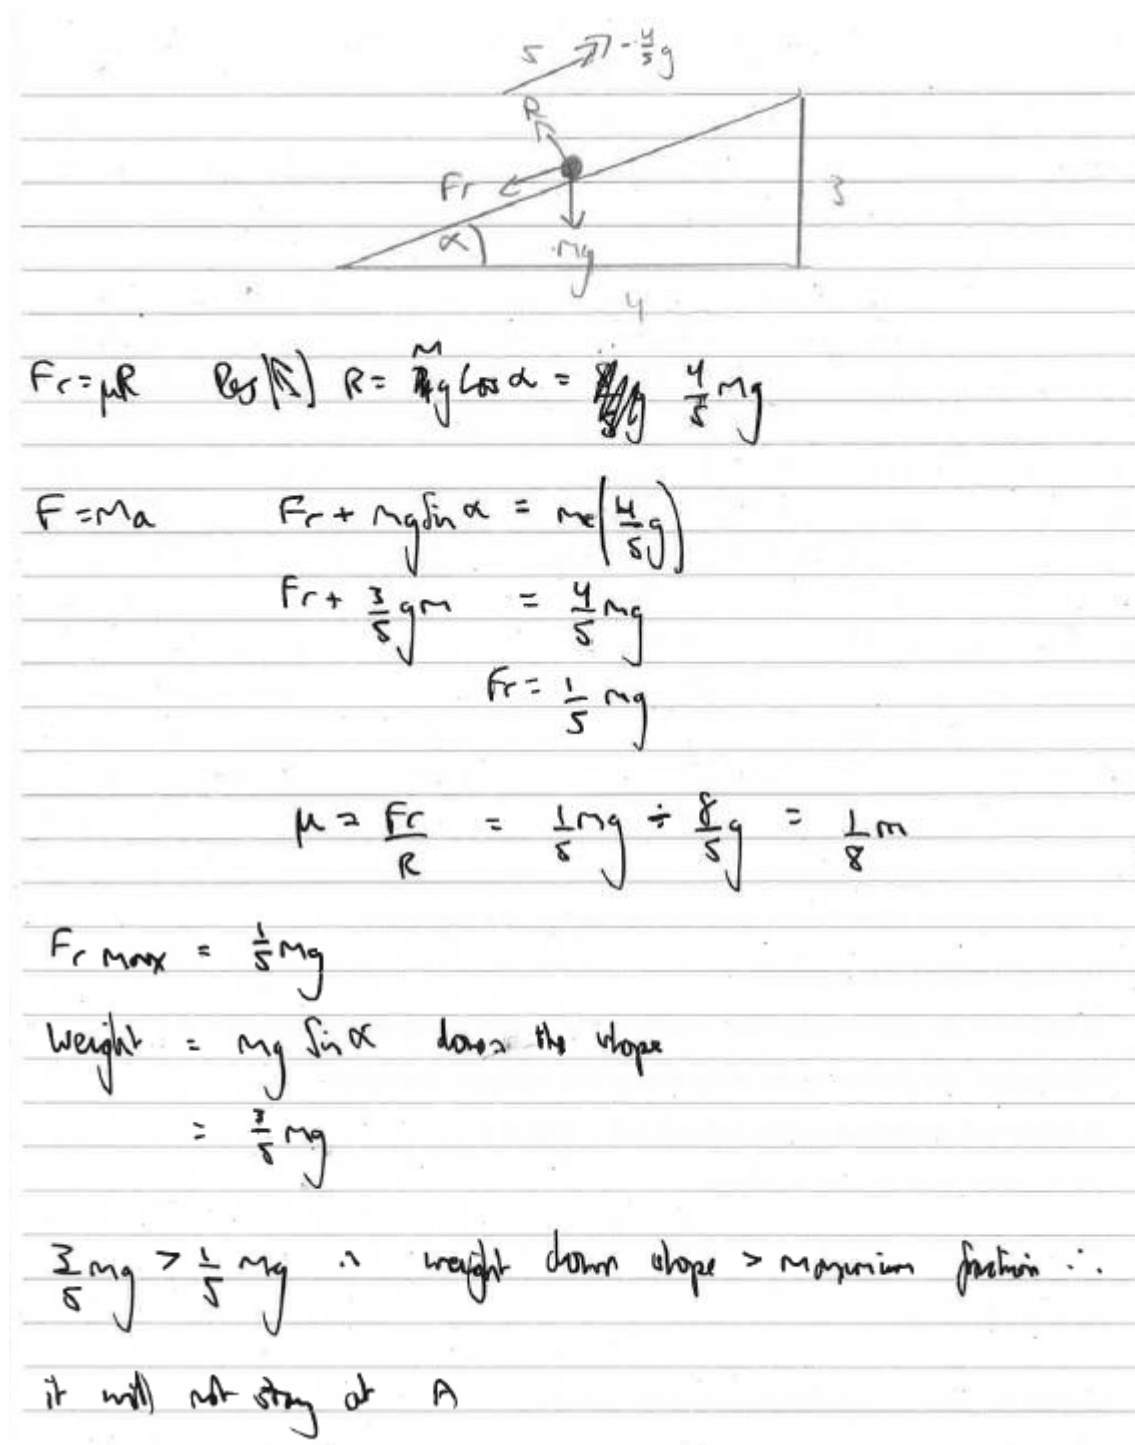 5 -4/5 g
R
Fr
α
mg
3
4
Fr = μR Res(↖) R = Mg cos α = 4/5 mg
F = Ma Fr + mg sin α = m(4/5 g)
Fr + 3/5 gm = 4/5 mg
Fr = 1/5 mg
μ = Fr/R = 1/5 mg ÷ 8/5 g = 1/8 m
Fr max = 1/5 mg
Weight = mg sin α down the slope
= 3/5 mg
3/5 mg > 1/5 mg ∴ weight down slope > maximum friction ∴
it will not stay at A